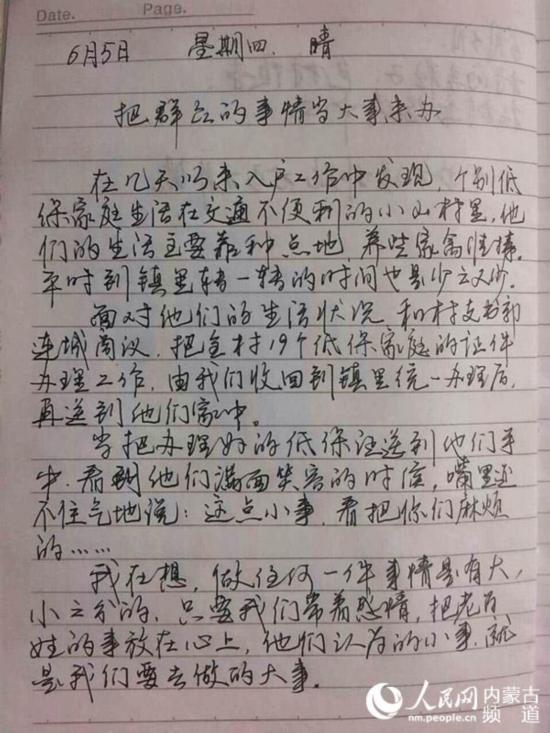 Date.        Page.
6月5日    星期四.  晴
把群众的事情当大事来办
在几天以来入户工作中发现,个别低
保家庭生活在交通不便利的小山村里,他
们的生活主要靠种点地 养些家禽维持。
平时到镇里转一转的时间也是少之又少。
面对他们的生活状况 和村支书郭
连城商议,把全村19个低保家庭的证件
办理工作,由我们收回到镇里统一办理后,
再送到他们家中。
当把办理好的低保证送到他们手
中,看到他们满面笑容的时候,嘴里还
不住气地说:这点小事,看把你们麻烦
的……
我在想,做任何一件事情是有大、
小之分的,只要我们带着感情,把老百
姓的事放在心上,他们认为的小事,就
是我们要去做的大事。
人民网 内蒙古
nm.people.cn 频道